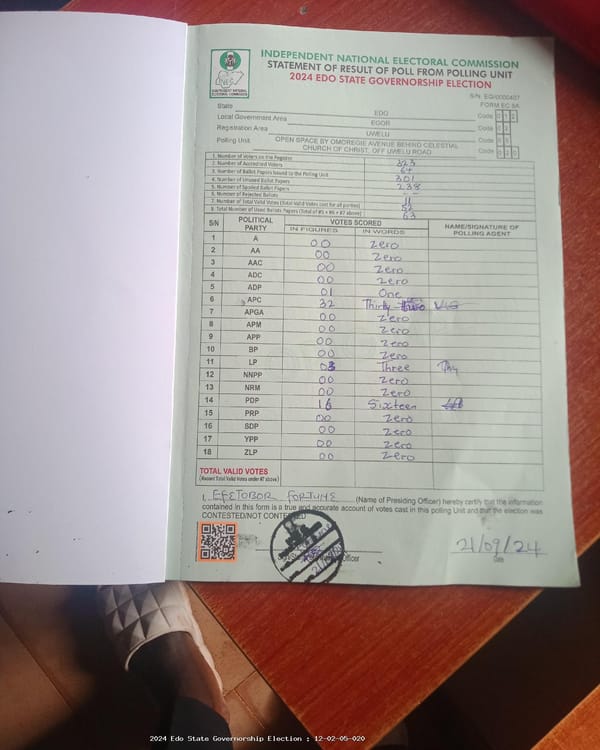 INDEPENDENT NATIONAL ELECTORAL COMMISSION
STATEMENT OF RESULT OF POLL FROM POLLING UNIT
2024 EDO STATE GOVERNORSHIP ELECTION
FORM EC 8A
State EDO Code 012
Local Government Area EGOR Code 02
Registration Area UWELU Code 05
Polling Unit OPEN SPACE BY OMOREGIE AVENUE BEHIND CELESTIAL CHURCH OF CHRIST, OFF UWELU ROAD Code 020
1. Number of Voters on the Register 323
2. Number of Accredited Voters 64
3. Number of Ballot Papers Issued to the Polling Unit 301
4. Number of Unused Ballot Papers 238
5. Number of Spoiled Ballot Papers --
6. Number of Rejected Ballots 11
7. Number of Total Valid Votes (Total Valid Votes cast for all parties) 52
8. Total Number of Used Ballots Papers (Total of #5 + #6 + #7 above) 63
S/N POLITICAL PARTY VOTES SCORED NAME/SIGNATURE OF POLLING AGENT
IN FIGURES IN WORDS
1 A 00 Zero
2 AA 00 Zero
3 AAC 00 Zero
4 ADC 00 Zero
5 ADP 01 One
6 APC 32 Thirty
7 APGA 00 Zero
8 APM 00 Zero
9 APP 00 Zero
10 BP 00 Zero
11 LP 03 Three
12 NNPP 00 Zero
13 NRM 00 Zero
14 PDP 16 Sixteen
15 PRP 00 Zero
16 SDP 00 Zero
17 YPP 00 Zero
18 ZLP 00 Zero
TOTAL VALID VOTES
I, EFETOBOR FORTUNE (Name of Presiding Officer) hereby certify that the information
contained in this form is a true and accurate account of votes cast in this polling Unit and that the election was
CONTESTED/NOT CONTESTED
21/09/24
Officer Date
2024 Edo State Governorship Election : 12-02-05-020